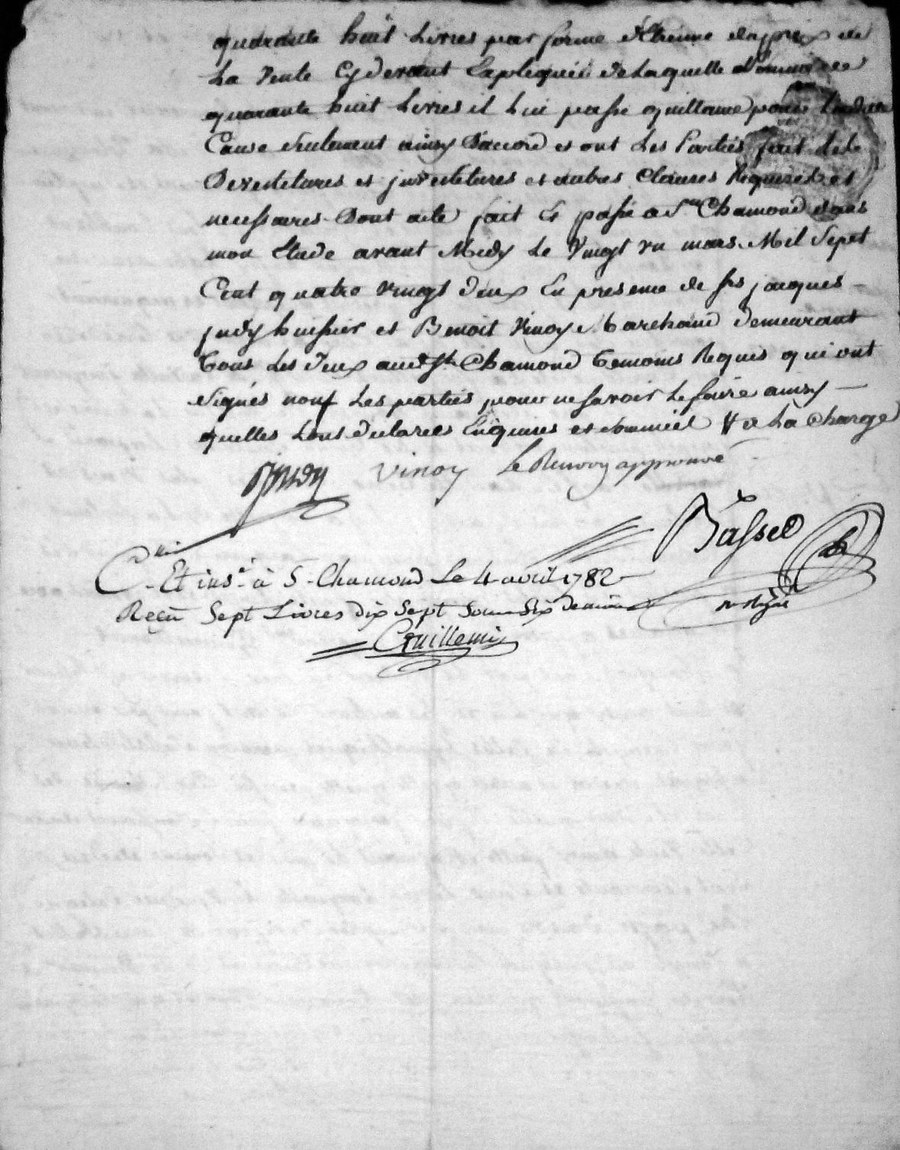 quarante huit Livres par forme d'Etienne du prix de
La Vente Cy devant Expliquée de Laquelle somme de
quarante huit Livres il Lui passe quittance pour Ladite
Cause seulement ainsy D'accord et ont Les Parties fait
Devestitures et jnvestitures et autres Clauses Requises et
necessaires Dont acte fait Et passé a St Chamond dans
mon Etude avant Midy Le Vingt un mars Mil Sept
Cent quatre vingt deux En presence de Srs jacques
judy huissier et Benoit Vinoy Marchand demeurant
tous Les deux audt St Chamond temoins Requis qui ont
signés nonf Les parties pour ne savoir Le faire ainsy
quelles Lont declarées Enquises et sommées # a La Charge
Judy Vinoy Le Renvoy approuvé
Basseo
C. Et ins. à S. Chamond Le 4 avril 1782
Reçu Sept Livres dix Sept Sous Six deniers
Guillemin